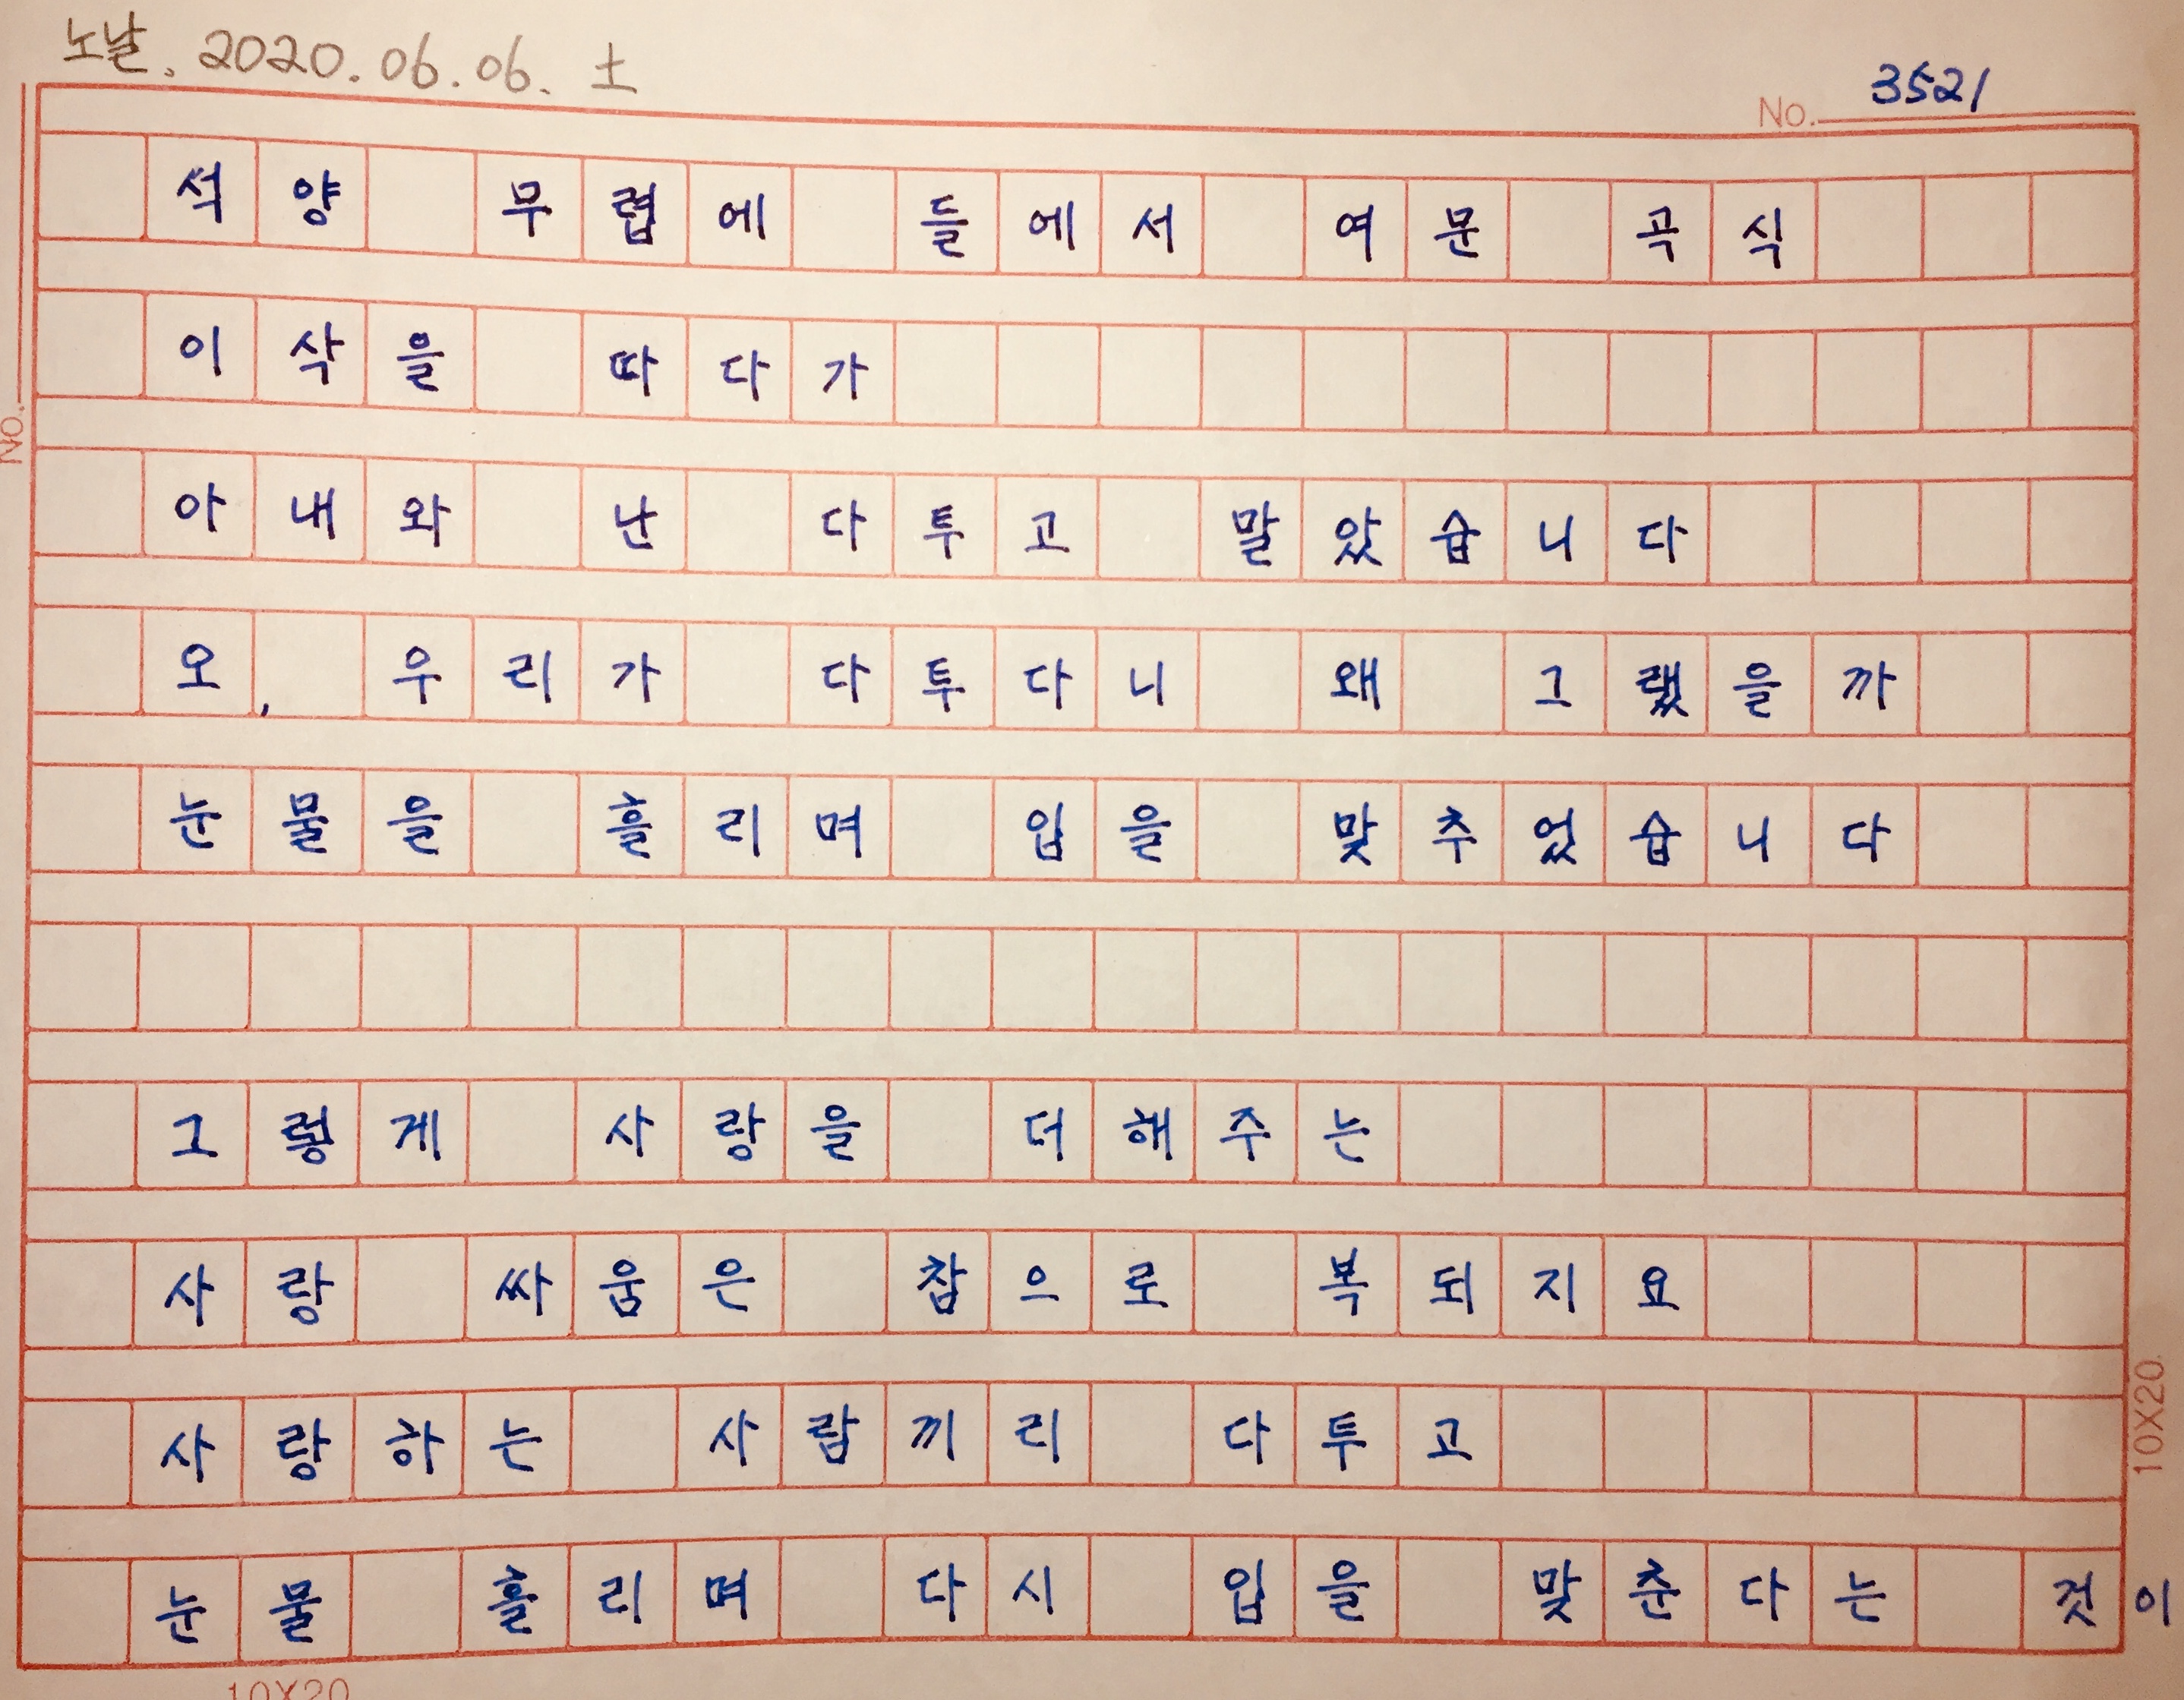 노날. 2020.06.06. 土
No. 3521
석양 무렵에 들에서 여문 곡식
이삭을 따다가
아내와 난 다투고 말았습니다
오, 우리가 다투다니 왜 그랬을까
눈물을 흘리며 입을 맞추었습니다
그렇게 사랑을 더해주는
사랑 싸움은 참으로 복되지요
사랑하는 사람끼리 다투고
눈물 흘리며 다시 입을 맞춘다는 것이
No.
10X20
10X20